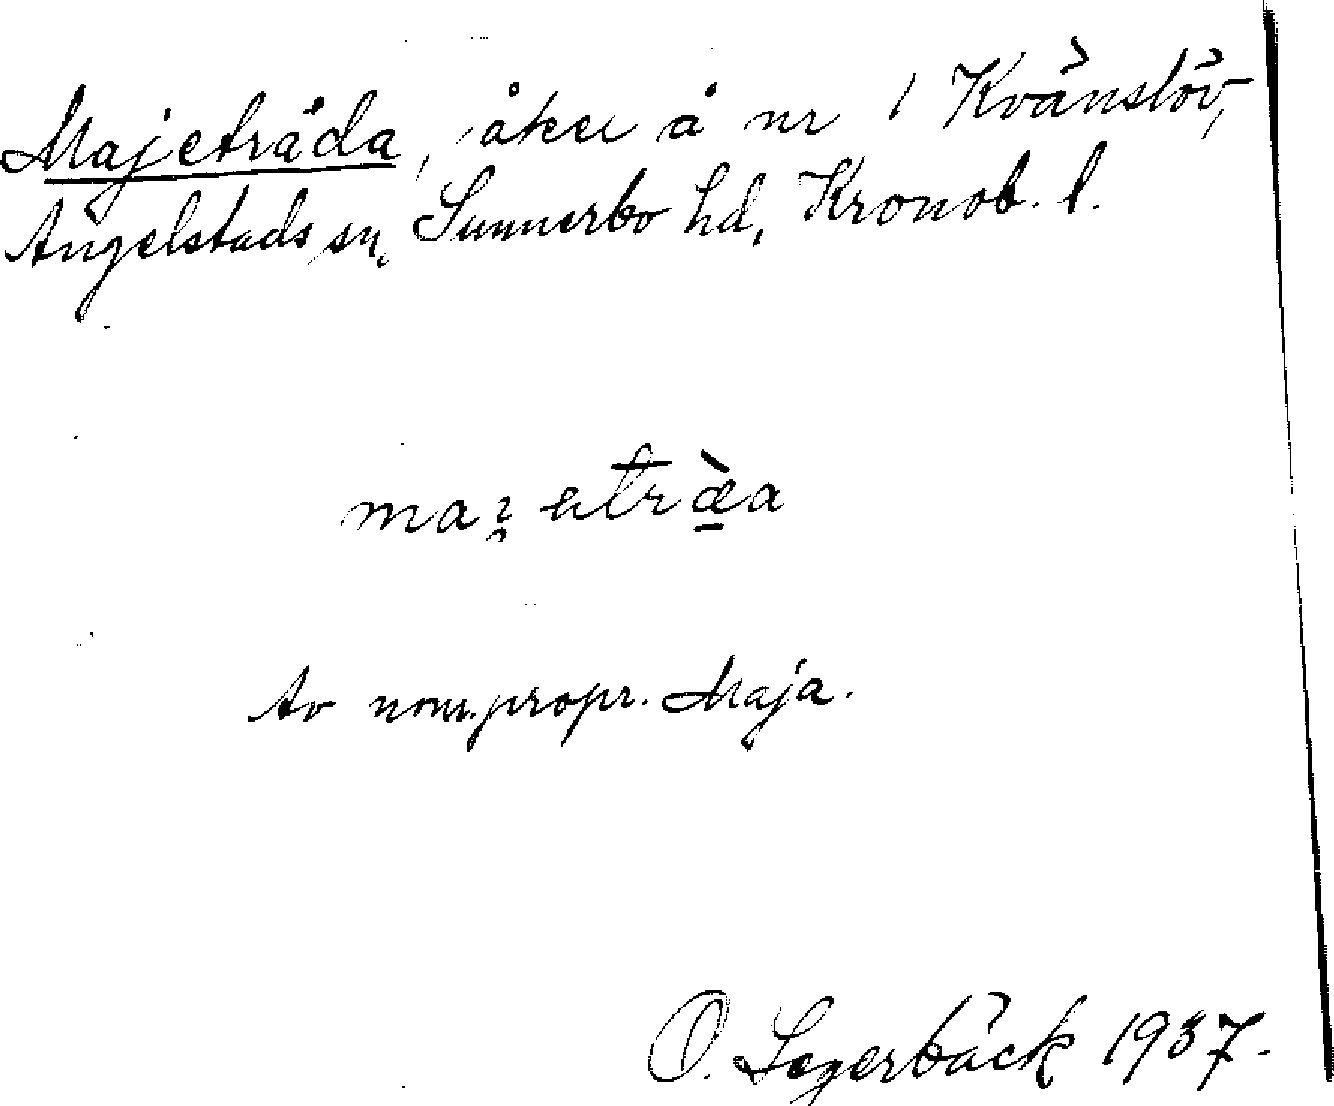 Majeträda, åker å nr 1 Kvänslöv,
Angelstads sn, Sunnerbo hd, Kronob. l.
Av nom. propr. Maja.
O. Segerbäck 1937.